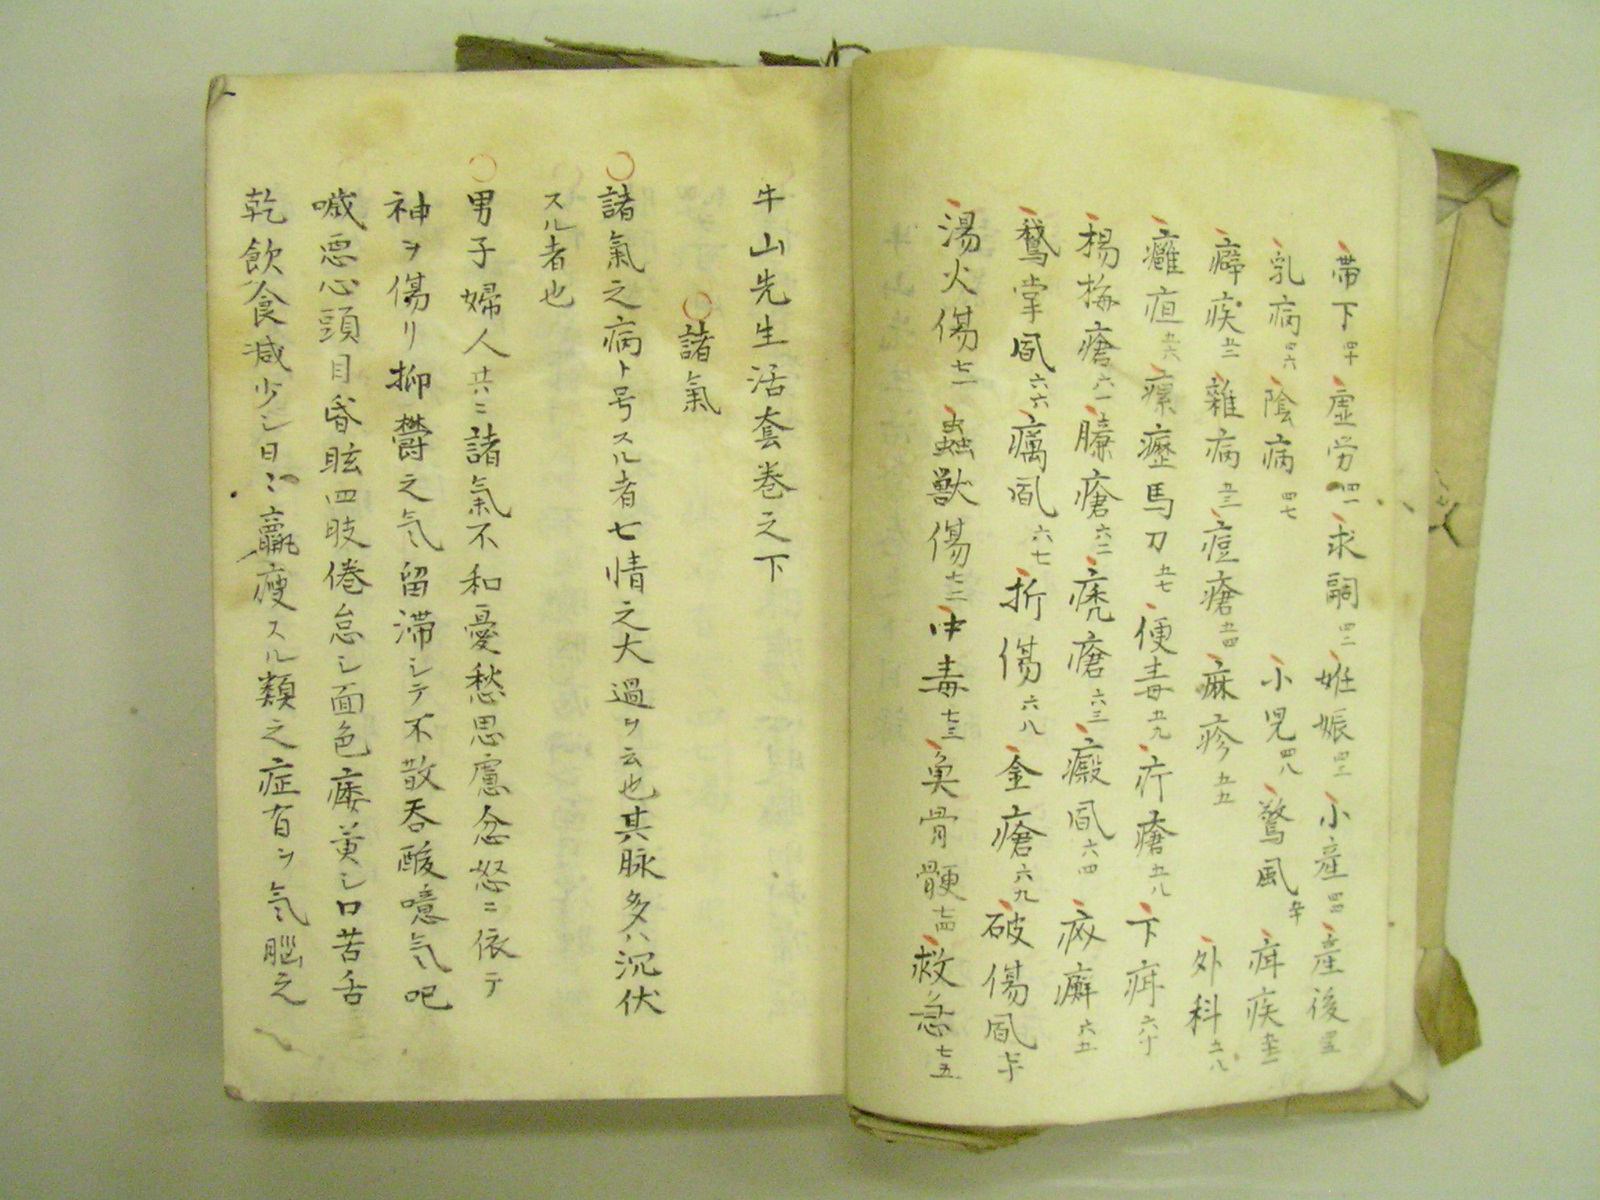 帯下四十 虚労四一 求嗣四二 妊娠四三 小産四四 産後四五
乳病四六 陰病四七 小児四八 驚風五十 疳疾五一
癖疾五二 雑病五三 痘瘡五四 麻疹五五 外科五八
癰疽五六 瘰癧馬刀五七 便毒五九 疔瘡五八 下疳六十
楊梅瘡六一 臁瘡六二 禿瘡六三 癜風六四 疥癬六五
鵞掌風六六 癘風六七 折傷六八 金瘡六九 破傷風七十
湯火傷七一 蟲獣傷七二 中毒七三 魚骨骾七四 救急七五
牛山先生活套巻之下
○諸氣
○諸氣之病ト号スル者七情之大過ヲ云也其脉多ハ沉伏
スル者也
○男子婦人共ニ諸氣不和憂愁思慮忿怒ニ依テ
神ヲ傷リ抑欝之気留滞シテ不散呑酸噫気吧
噦悪心頭目昏眩四肢倦怠シ面色痿黄シ口苦舌
乾飲食減少シ日々羸痩スル類之症有ヲ気脳之